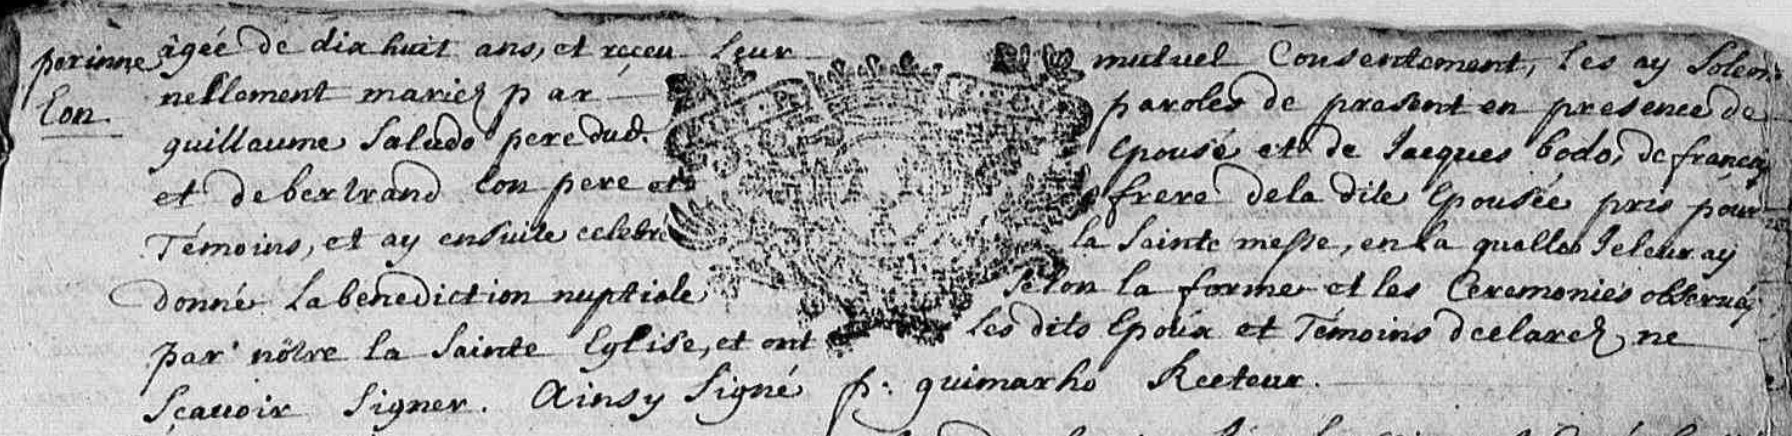 perinne
Lon
âgée de dix huit ans, et reçeu leur mutuel Consentement, les ay Solem-
nellement mariez par paroles de present en presence de
guillaume Saludo pere dud. Epousé et de Jacques bodo, de françois
et de bertrand Lon pere et frere de la dite Epousée pris pour
Témoins, et ay ensuite celebré la Sainte messe, en la quelle Je leur ay
donné la benediction nuptiale Selon la forme et les Ceremonies observés
par nôtre la Sainte Eglise, et ont les dits Epoux et Témoins declarez ne
Sçauoir Signer. Ainsy Signé p: guimarho Recteur.